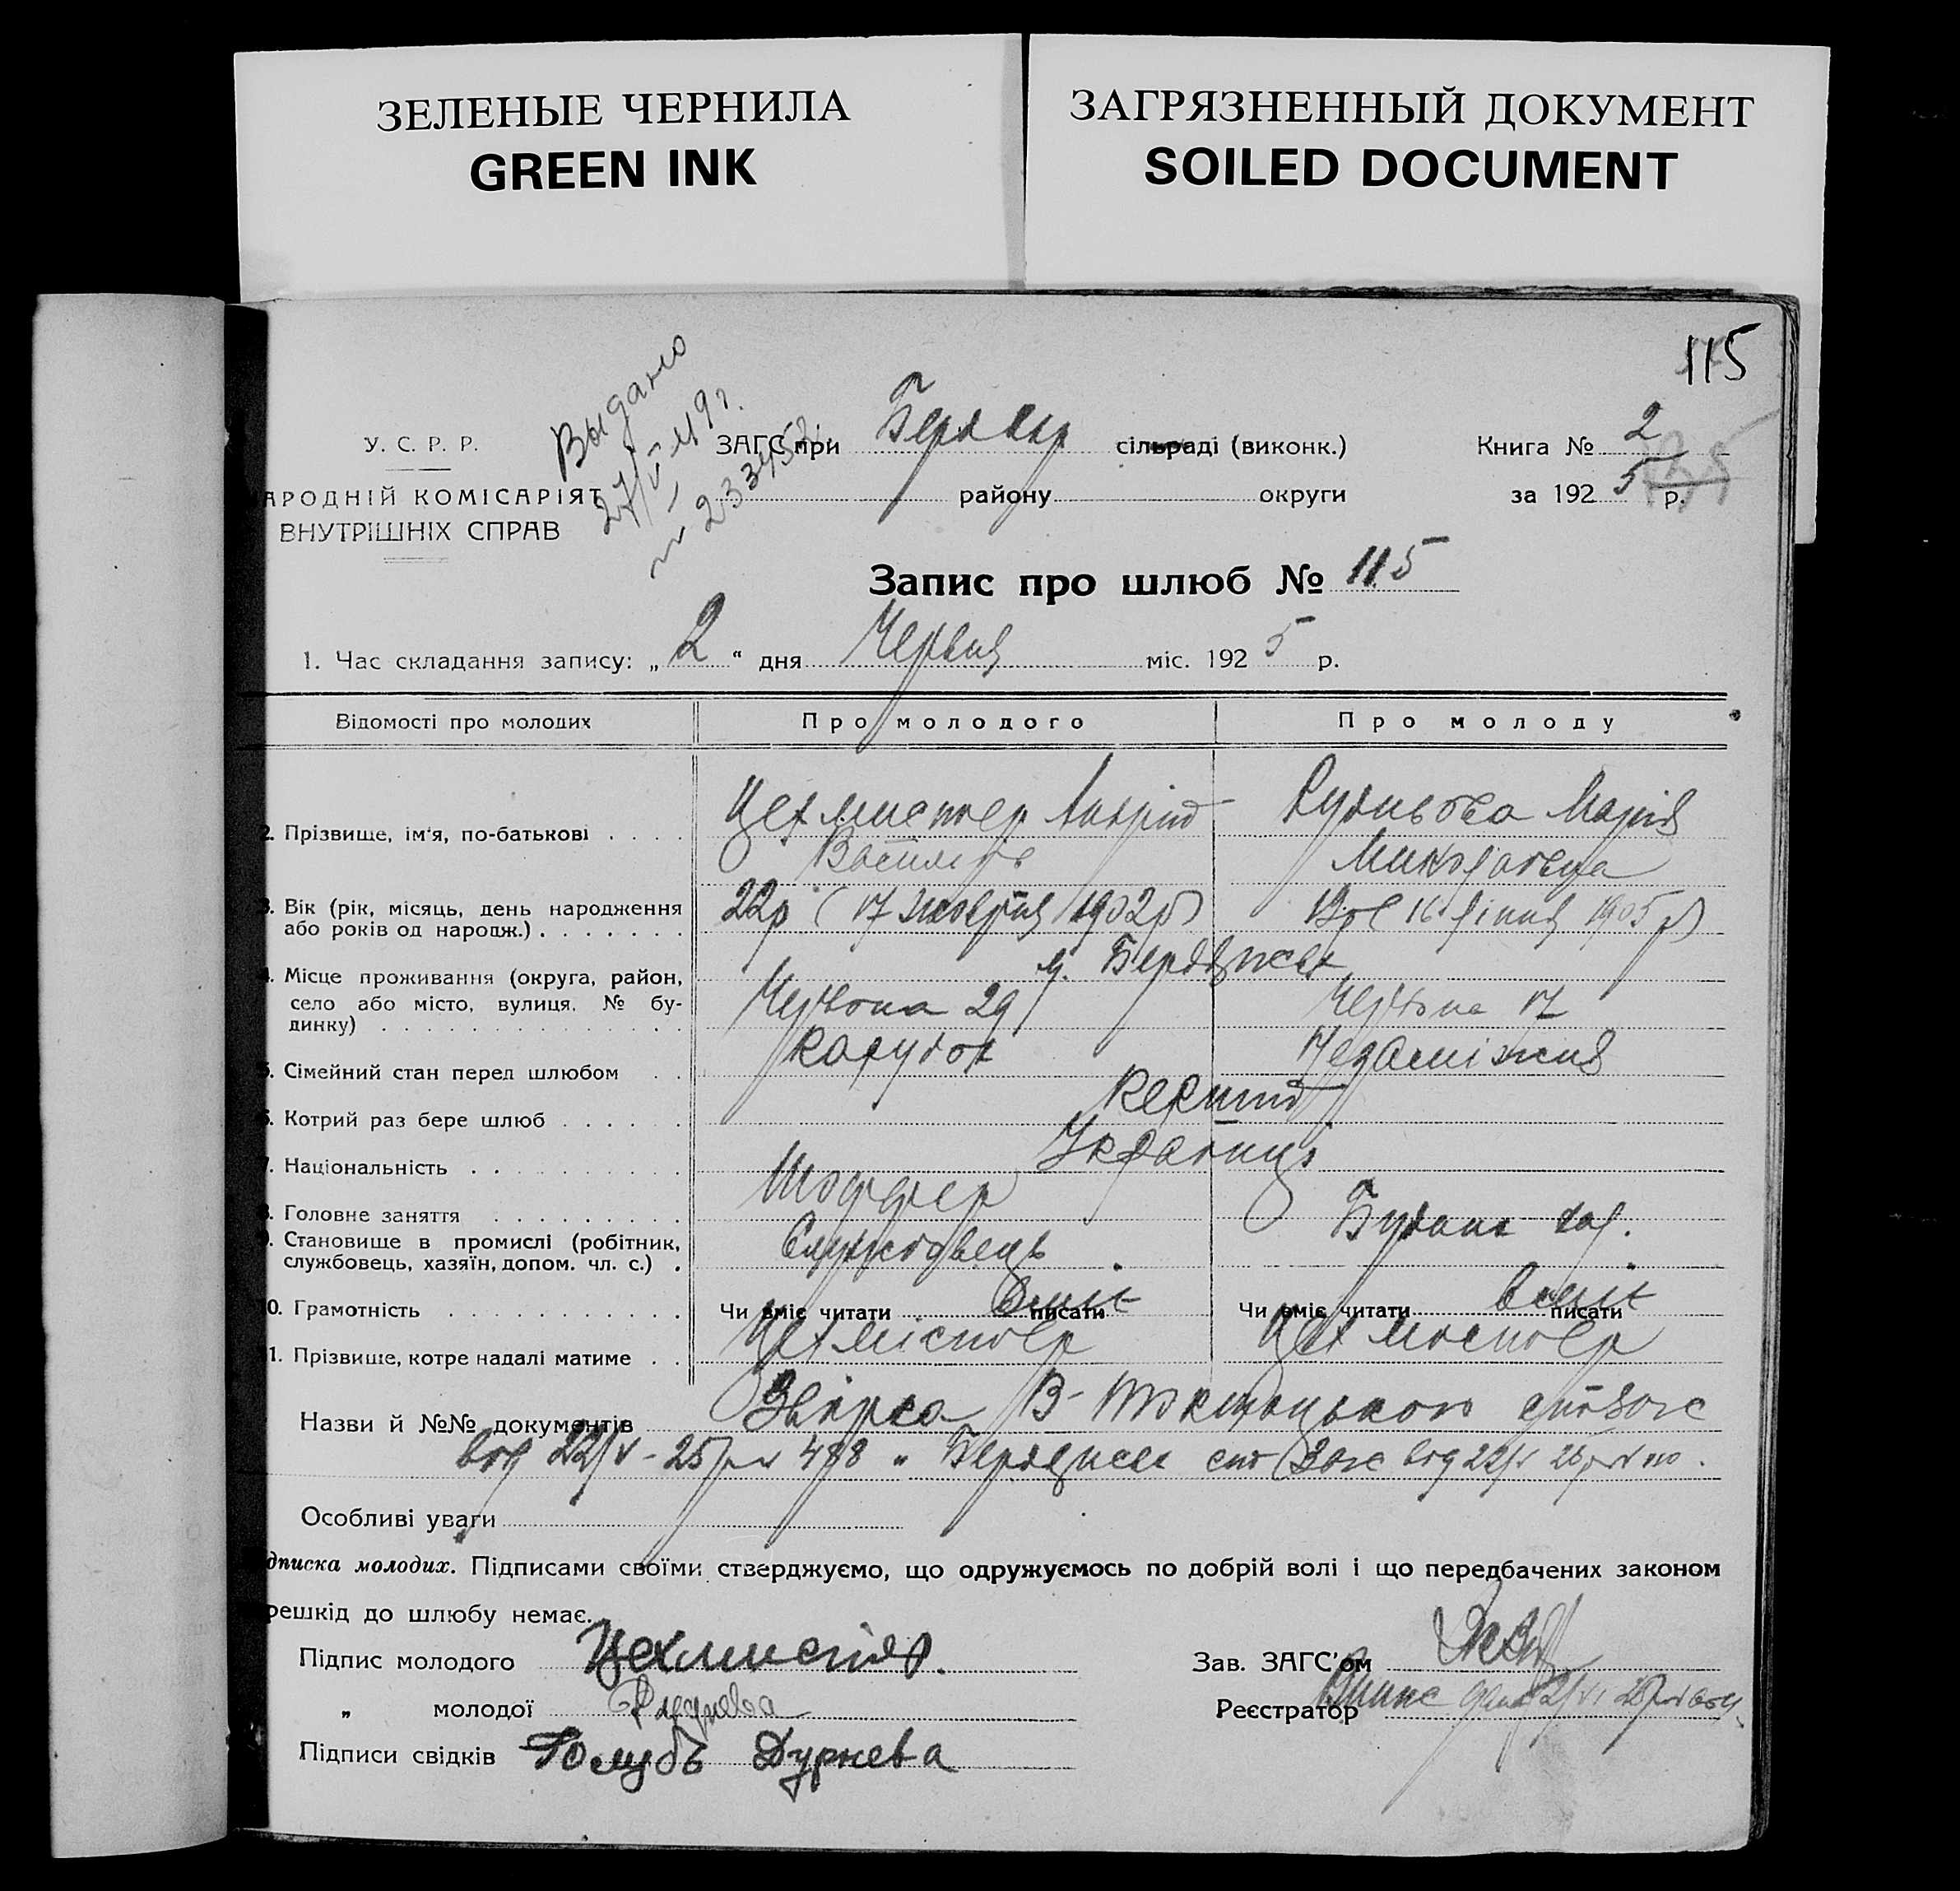 ЗЕЛЕНЫЕ ЧЕРНИЛА
GREEN INK
ЗАГРЯЗНЕННЫЙ ДОКУМЕНТ
SOILED DOCUMENT
115
Выдано
27/V-49 г.
№ 233452
У. С. Р. Р.
АРОДНІЙ КОМІСАРІЯТ
ВНУТРІШНІХ СПРАВ
ЗАГС при сільраді (виконк.)
району округи
Книга № 2
за 192 5 р.
Запис про шлюб № 115
1. Час складання запису: „ 2 “ дня Червня міс. 192 5 р.
Відомості про молодих Про молодого Про молоду
2. Прізвище, ім'я, по-батькові Цехмистер Андрій Марія
Василів Миколаєвна
3. Вік (рік, місяць, день народження або років од народж.) 22р ( 17 жовтня 1902р) 16 липня 1905 р)
4. Місце проживання (округа, район, село або місто, вулиця. № будинку) м. Бердичев
Червона 29 Червона 17
5. Сімейний стан перед шлюбом Парубок Незаміжня
6. Котрий раз бере шлюб Перший
7. Національність Українці
8. Головне заняття Шоффер
9. Становище в промислі (робітник, службовець, хазяїн, допом. чл. с.) Службовець
10. Грамотність Чи вміє читати писати вміє Чи вміє читати писати вміє
11. Прізвище, котре надалі матиме Цехмістер Цехмістер
Назви й №№ документів
від 22/V-25р № 488 Бердичев від 22/V 25р №
Особливі уваги
дписка молодих. Підписами своїми стверджуємо, що одружуємось по добрій волі і що передбачених законом
решкід до шлюбу немає.
Підпис молодого Цехмистер.
„ молодої
Підписи свідків Голубъ Дурнева
Зав. ЗАГС'ом
Реєстратор